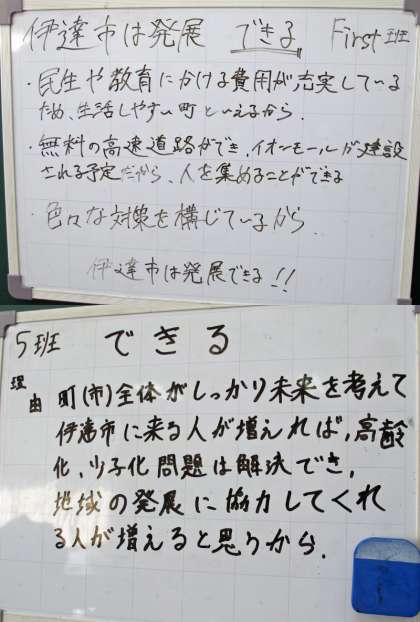 伊達市は発展 できる First班
・民生や教育にかける費用が充実している
ため、生活しやすい町といえるから.
・無料の高速道路ができ、イオンモールが建設
される予定だから、人を集めることができる
・色々な対策を構じているから.
伊達市は発展できる!!
5班 できる
理由 町(市)全体がしっかり未来を考えて
伊達市に来る人が増えれば、高齢
化、少子化問題は解決でき、
地域の発展に協力してくれ
る人が増えると思うから.